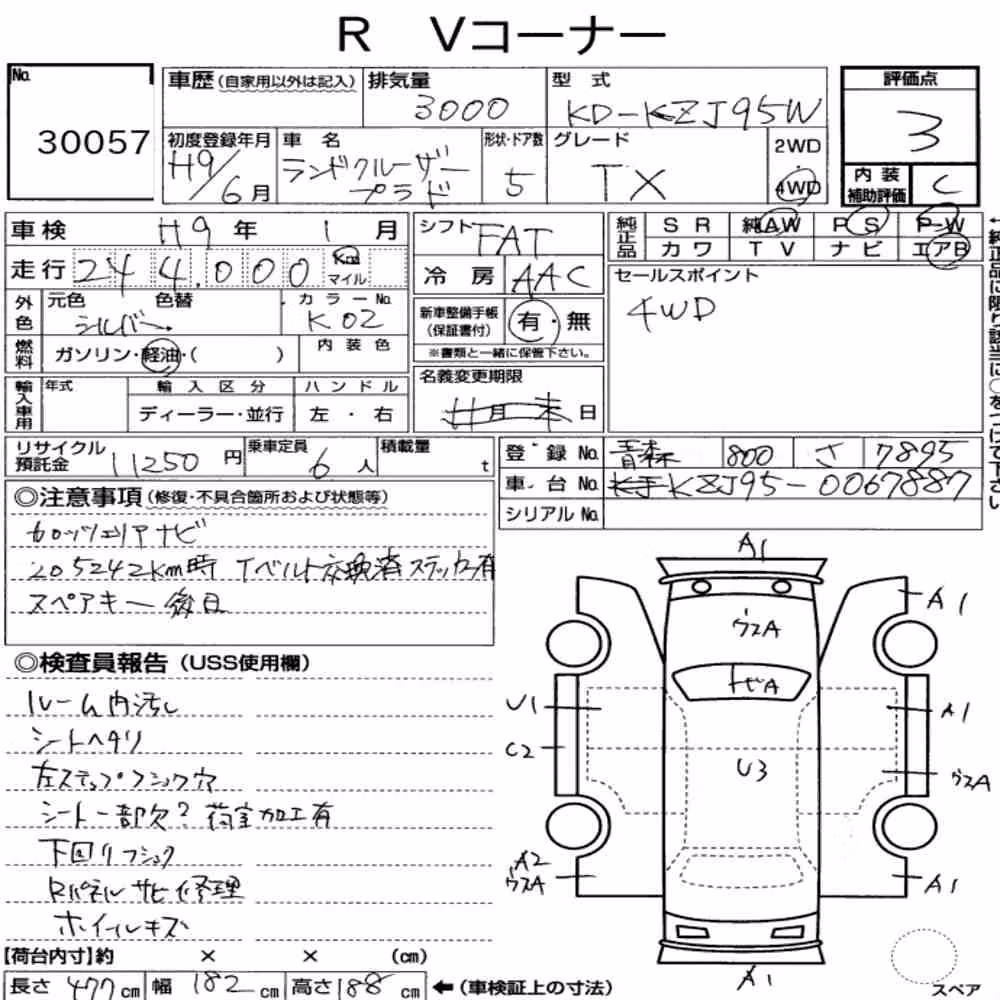 R Vコーナー
No. 30057
車歴(自家用以外は記入)
排気量 3000
型式 KD-KZJ95W
評価点 3
初度登録年月 H9/6月
車名 ランドクルーザープラド
形状・ドア数 5
グレード TX
2WD
4WD
内装補助評価 C
車検 H9年 1月
走行 244,000 Km マイル
シフト FAT
冷房 AAC
純正品 SR 純AW PS P-W
カワ TV ナビ エアB
外色 元色 シルバー 色替
カラーNo. K02
燃料 ガソリン・軽油・( )
内装色
新車整備手帳(保証書付) 有・無
※書類と一緒に保管下さい。
セールスポイント
4WD
輸入車用 年式 輸入区分 ハンドル
ディーラー・並行 左・右
名義変更期限
月末日
リサイクル預託金 11250円
乗車定員 6人
積載量 t
登録No. 青森 800 さ 7895
車台No. KZJ95-0067887
シリアルNo.
◎注意事項(修復・不具合箇所および状態等)
カロッツェリアナビ
205242km時 Tベルト交換済ステッカー有
スペアキー後日
◎検査員報告(USS使用欄)
ルーム内汚レ
シートヘタリ
左ステップフショク穴
シート一部欠? 荷室加工有
下回リフショク
Rパネルサビ修理
ホイールキズ
A1
A1
ウスA
トビA
U1
A1
C2
U3
ウスA
A2
ウスA
A1
A1
スペア
【荷台内寸】約 × × (cm)
長さ 477cm 幅 182cm 高さ 188cm ←(車検証上の寸法)